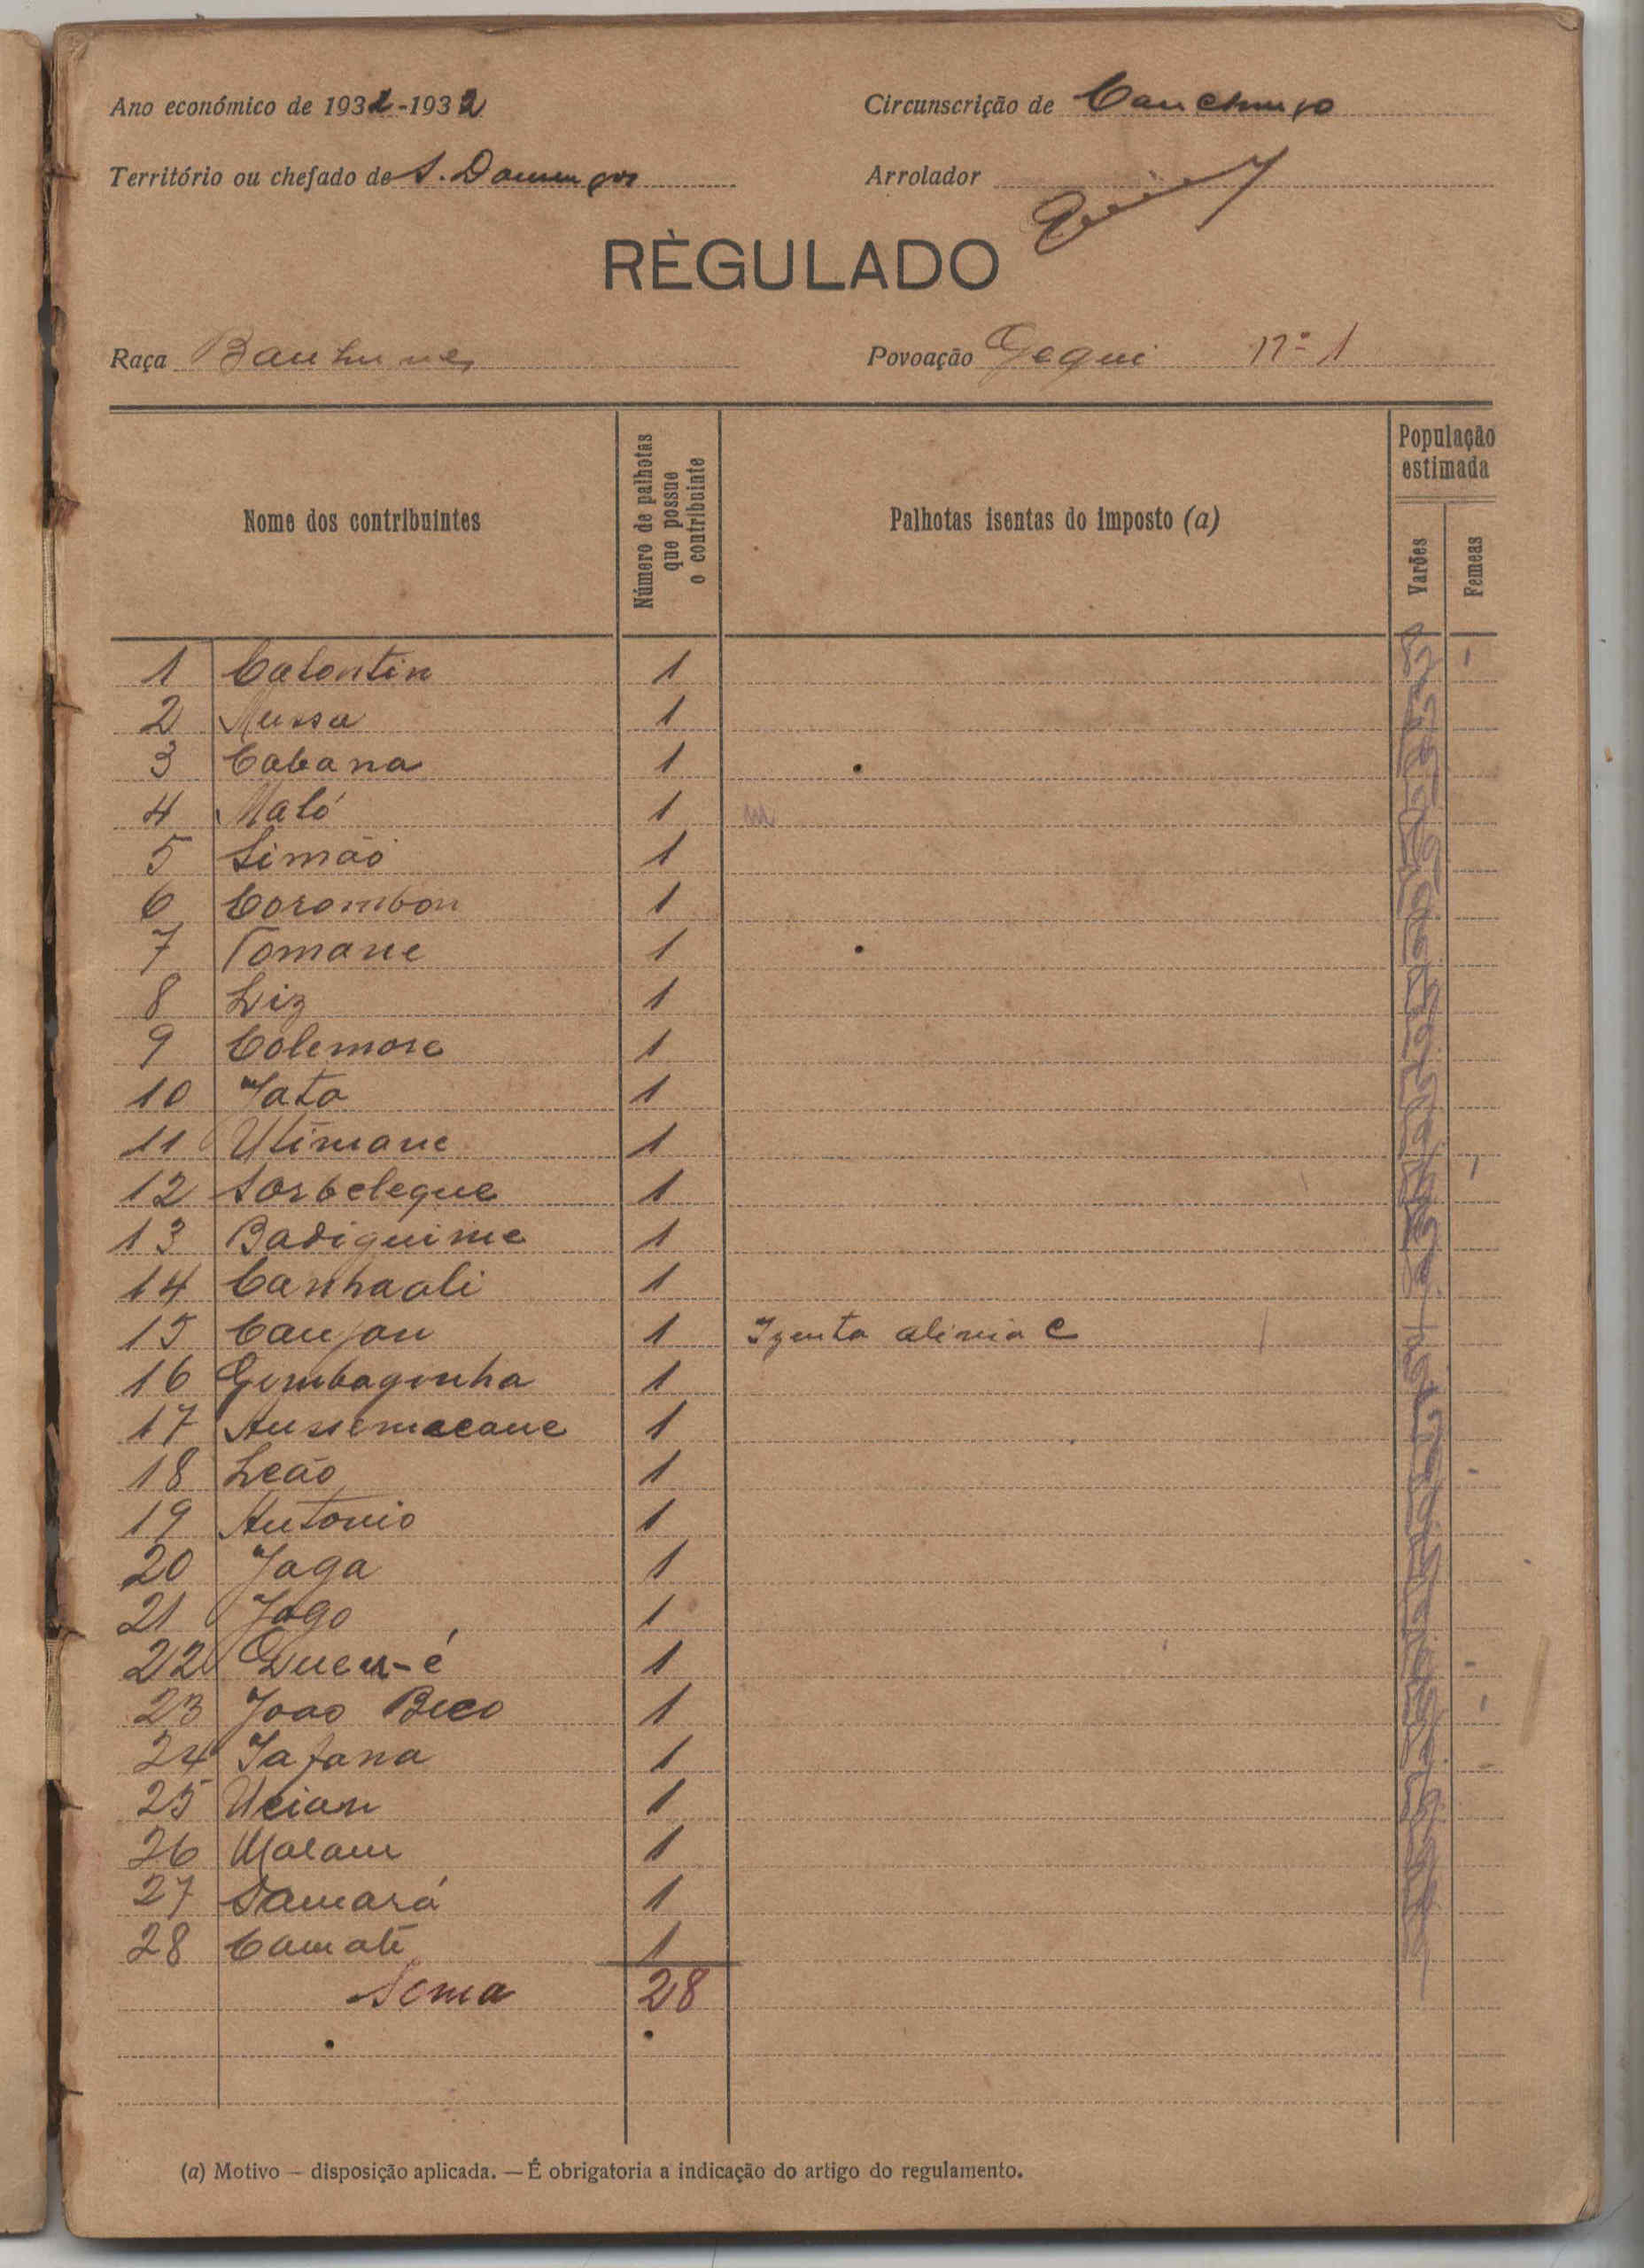 Ano económico de 1932-1932 Circunscrição de Canchungo
Território ou chefado de S. Domingos Arrolador
RÈGULADO
Raça Banhunes Povoação Gequi nº 1
Nome dos contribuintes
Número de palhotas que possue o contribuinte
Palhotas isentas do imposto (a)
População estimada
Varões
Femeas
1 Calontin 1
2 Mussa 1
3 Cabana 1
4 Maló 1
5 Simão 1
6 Corombon 1
7 Tomane 1
8 Liz 1
9 Colemore 1
10 Jata 1
11 Utimane 1
12 Sorbeleque 1
13 Badiguime 1
14 Canhaali 1
15 Canjan 1 Izenta alinia C
16 Gimbaginha 1
17 Aussemacane 1
18 Leão 1
19 Antonio 1
20 Jaga 1
21 Jogo 1
22 1
23 Joao Beco 1
24 Jafana 1
25 Ucian 1
26 Malam 1
27 Samará 1
28 Camaté 1
Soma 28
(a) Motivo — disposição aplicada. — É obrigatoria a indicação do artigo do regulamento.